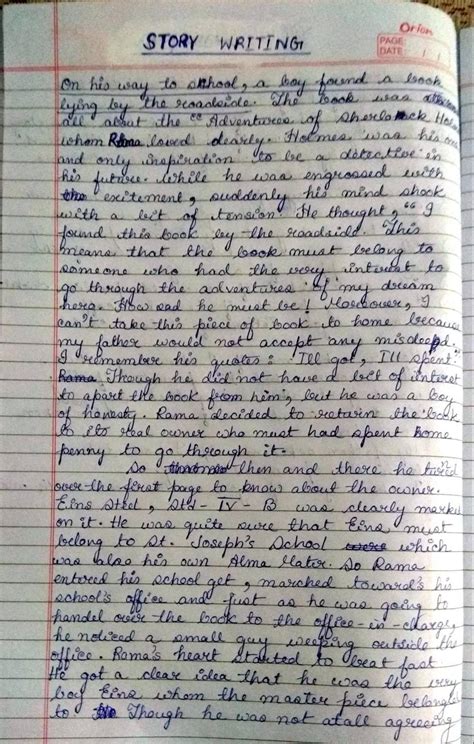 Orion
PAGE
DATE
STORY WRITING
On his way to school, a boy found a book
lying by the roadside. The book was
all about the "Adventures of Sherlock Hol
whom Rama loved dearly. Holmes was his on
and only inspiration to be a detective in
his future. While he was engrossed with
the excitement, suddenly his mind shook
with a bit of tension. He thought, "I
found this book by the roadside. This
means that the book must belong to
someone who had the very interest to
go through the adventures of my dream
hero. How sad he must be! Moreover, I
can't take this piece of book to home becau
my father would not accept any misdeed.
I remember his quotes: Ill got, Ill spent
Rama Though he did not have a bit of interest
to apart the book from him, but he was a boy
of honesty. Rama decided to return the book
to its real owner who must had spent some
penny to go through it.
So then and there he turned
over the first page to know about the owner.
Eins Steel, Std - IV - B was clearly mark
on it. He was quite sure that Eins must
belong to St. Joseph's School which
was also his own Alma Mater. So Rama
entered his school get, marched toward's his
school's office and just as he was going to
handel over the book to the office-in-charge,
he noticed a small guy weeping outside the
office. Rama's heart started to beat fast
He got a clear idea that he was the very
boy Eins whom the master piece belong
to Though he was not atall agreeing